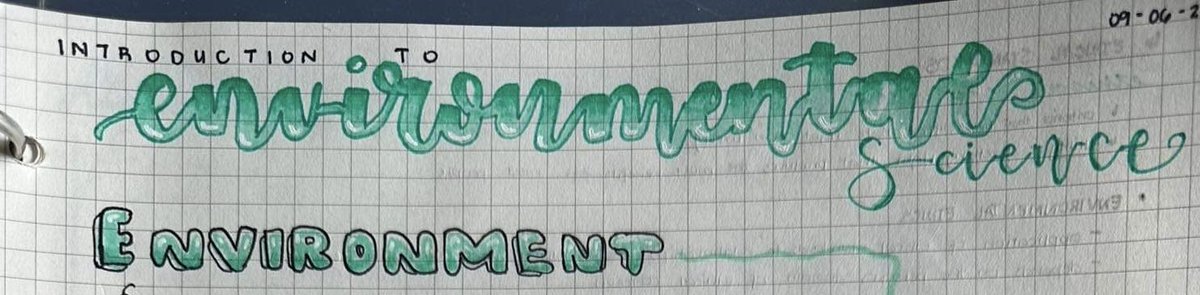 09-06-2
INTRODUCTION TO
environmental
Science
ENVIRONMENT